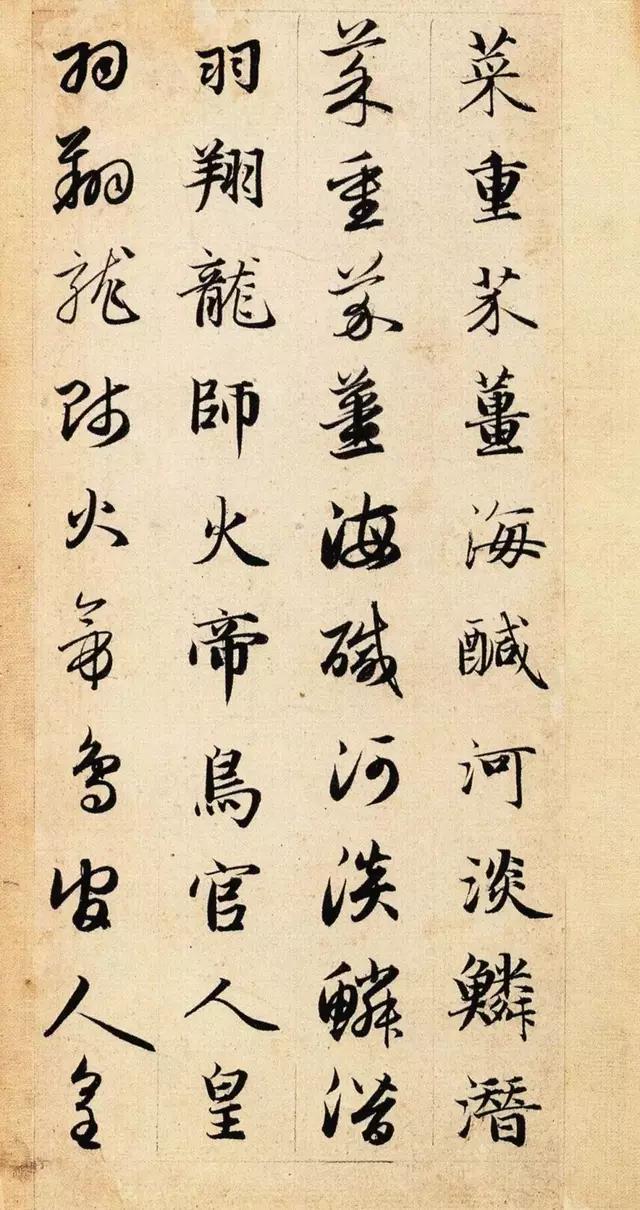 菜重芥薑海鹹河淡鱗潛
菜重芥薑海鹹河淡鱗潛
羽翔龍師火帝鳥官人皇
羽翔龍師火帝鳥官人皇